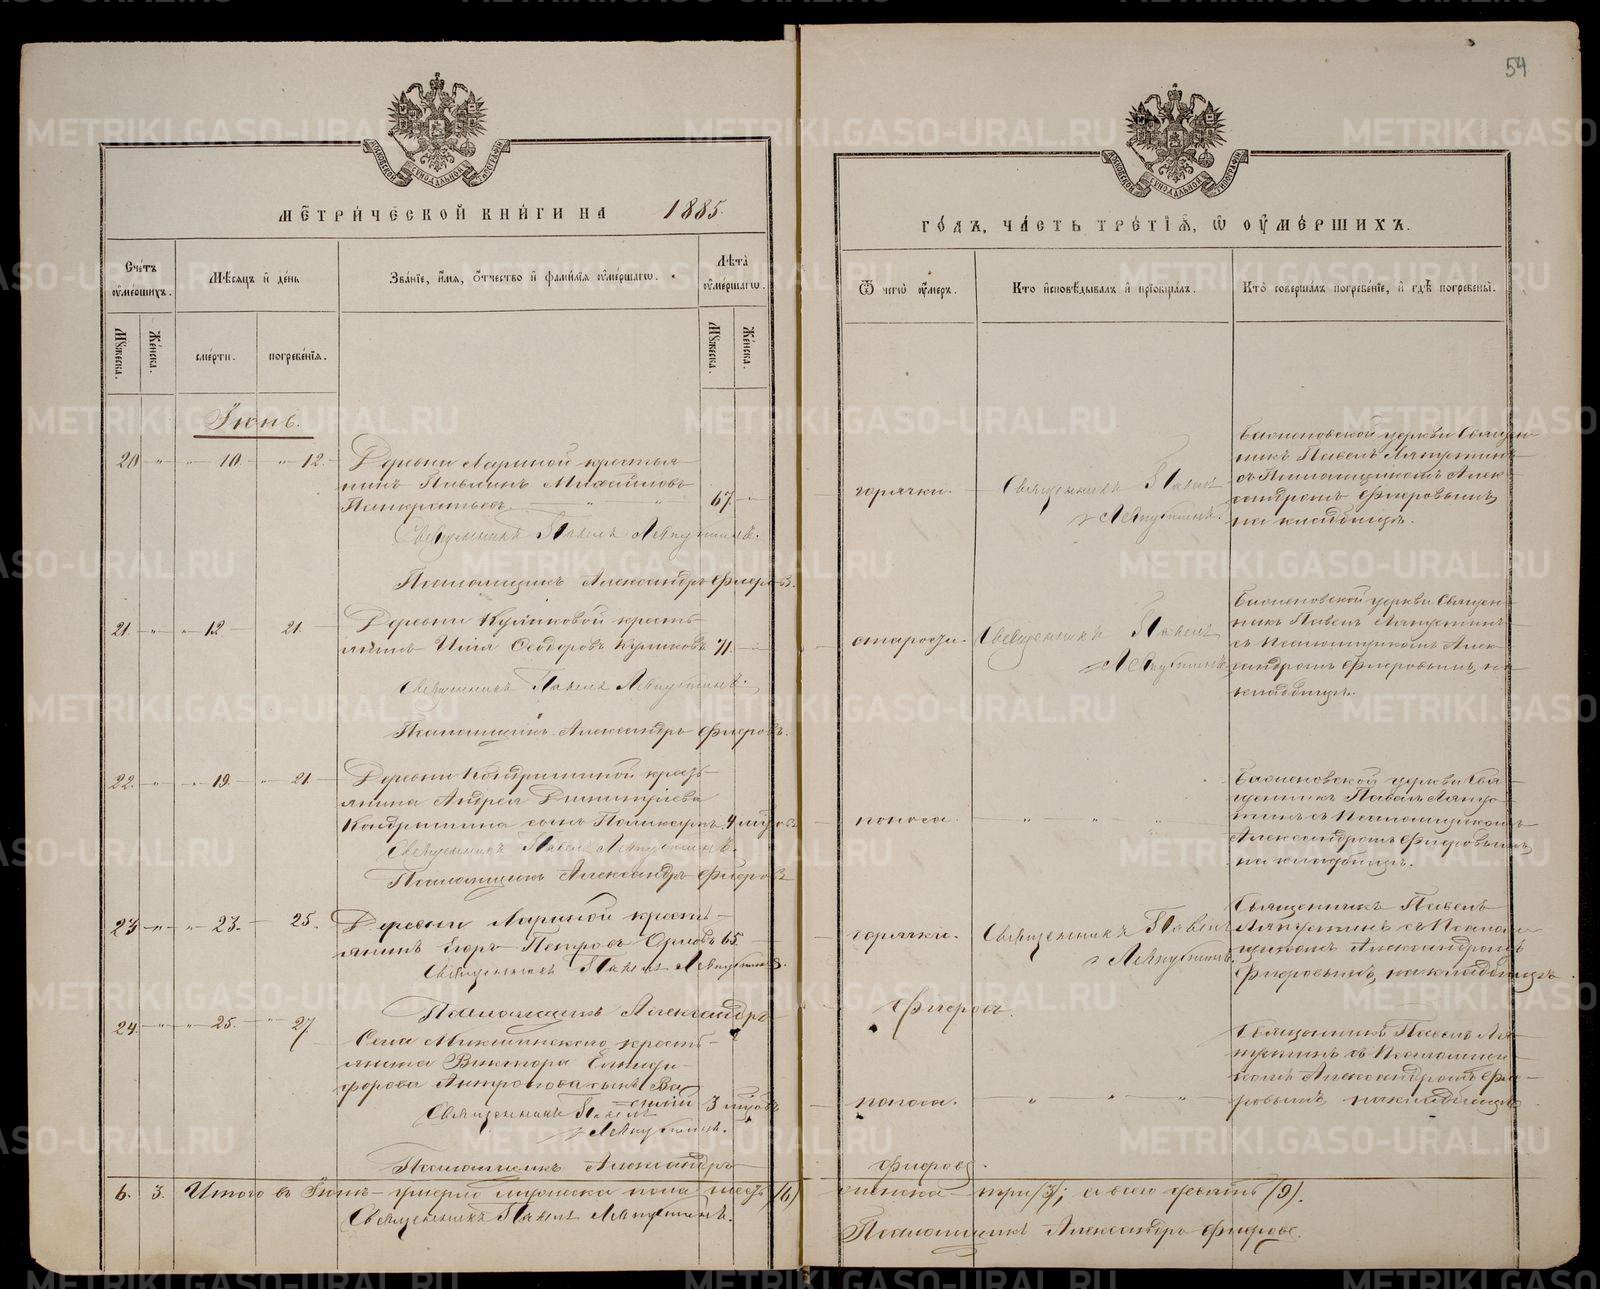 54
МЕТРИЧЕСКОЙ КНИГИ НА 1885.
ГОДЪ, ЧАСТЬ ТРЕТІЯ, Ѿ ОУМЕРШИХЪ.
Счетъ оумершихъ.
Мѣсяцъ и день
Званіе, имя, отчество и фамилія оумершагѡ.
Лѣта оумершагѡ.
Ѿ чегѡ оумеръ.
Кто исповѣдывалъ и пріобщалъ.
Кто совершалъ погребеніе, и гдѣ погребены.
Мужеска.
Женска.
смерти.
погребенія.
Мужеска.
Женска.
Іюнь.
20 " " 10. " 12.
Деревни Лариной крестья-
нинъ Михайловъ
67. "
Священникъ Павелъ Ляпустинъ.
Псаломщикъ Александръ Фигровъ.
горячки.
Священникъ Павелъ
Ляпустинъ.
церкви Священ-
никъ Павелъ Ляпустинъ
съ Псаломщикомъ Алек-
сандромъ Фигровымъ,
на кладбищѣ.
21 " " 12 21.
Деревни Куликовой кресть-
янинъ Илія Ѳеодоровъ Куликовъ 71.
Священникъ Павелъ Ляпустинъ.
Псаломщикъ Александръ Фигровъ.
старости.
Священникъ Павелъ
Ляпустинъ
церкви Священ-
никъ Павелъ Ляпустинъ
съ Псаломщикомъ Алек-
сандромъ Фигровымъ, на
кладбищѣ.
22. " " 19. " 21
Деревни Кондрашиной кресть-
янина Андрея Димитріева
Кондрашина сынъ Поликарпъ. 4 мѣс.
Священникъ Павелъ Ляпустинъ.
Псаломщикъ Александръ Фигровъ
поноса. " " "
церкви Свя-
щенникъ Павелъ Ляпу-
стинъ съ Псаломщикомъ
Александромъ Фигровымъ,
на кладбищѣ.
23 " " 23. 25.
Деревни Лариной кресть-
янинъ Егоръ Петровъ Орловъ 65.
Священникъ Павелъ Ляпустинъ.
Псаломщикъ Александръ
Фигровъ.
горячки.
Священникъ Павелъ
Ляпустинъ.
Священникъ Павелъ
Ляпустинъ съ Псалом-
щикомъ Александромъ
Фигровымъ, на кладбищѣ.
24. " " 25. " 27
Села кресть-
янина Виктора Елпиди-
форова Антропова сынъ Ва-
силій 3 мѣс.
Священникъ Павелъ
Ляпустинъ.
Псаломщикъ Александръ
Фигровъ.
поноса. " " "
Священникъ Павелъ Ля-
пустинъ съ Псаломщи-
комъ Александромъ Фиг-
ровымъ на кладбищѣ
6. 3. Итого въ Іюнѣ умерло мужеска пола шесть (6)
женска три (3); а всего девять (9).
Священникъ Павелъ Ляпустинъ.
Псаломщикъ Александръ Фигровъ.
METRIKI.GASO-URAL.RU